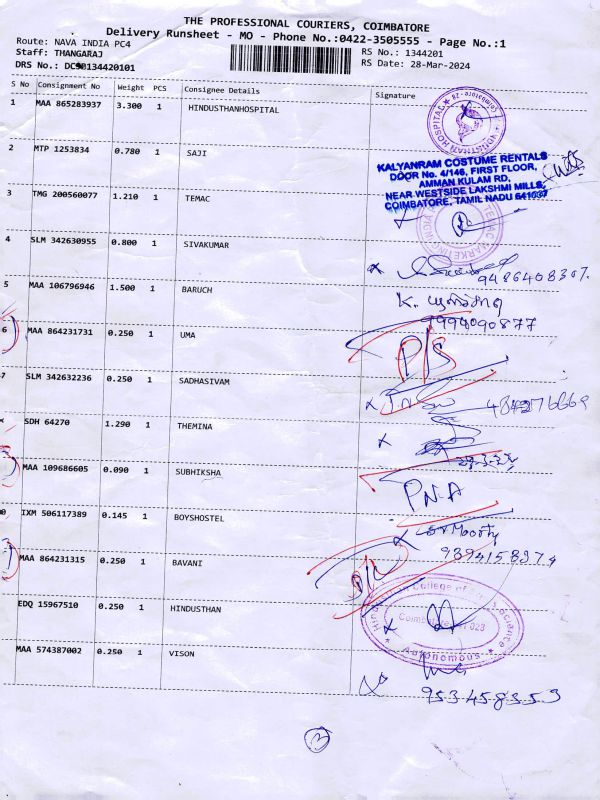 THE PROFESSIONAL COURIERS, COIMBATORE
Delivery Runsheet - MO - Phone No.:0422-3505555 - Page No.:1
Route: NAVA INDIA PC4
RS No.: 1344201
Staff: THANGARAJ
RS Date: 28-Mar-2024
DRS No.: 134420101
S No Consignment No Weight PCS Consignee Details Signature
1 MAA 865283937 3.300 1 HINDUSTHANHOSPITAL
2 MTP 1253834 0.780 1 SAJI
KALYANRAM COSTUME RENTALS
DOOR No. 4/146, FIRST FLOOR,
AMMAN KULAM RD,
NEAR WESTSIDE LAKSHMI MILLS,
COIMBATORE, TAMIL NADU 641037
3 TMG 200560077 1.210 1 TEMAC
4 SLM 342630955 0.800 1 SIVAKUMAR
9486408307.
5 MAA 106796946 1.500 1 BARUCH
K.
9994090877
6 MAA 864231731 0.250 1 UMA
P/S
7 SLM 342632236 0.250 1 SADHASIVAM
SDH 64270 1.290 1 THEMINA
MAA 109686605 0.090 1 SUBHIKSHA
PNA
0 IXM 506117389 0.145 1 BOYSHOSTEL
MAA 864231315 0.250 1 BAVANI
EDQ 15967510 0.250 1 HINDUSTHAN
Autonomous
MAA 574387002 0.250 1 VISON
953458353
3